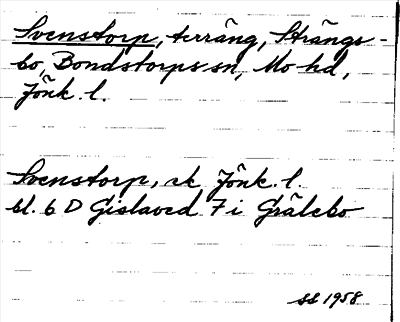 Svenstorp, terräng, Stränge-
bo, Bondstorps sn, Mo hd,
Jönk. l.
Svenstorp, ek Jönk. l.
bl. 6 D Gislaved 7 i Grälebo
SS 1958